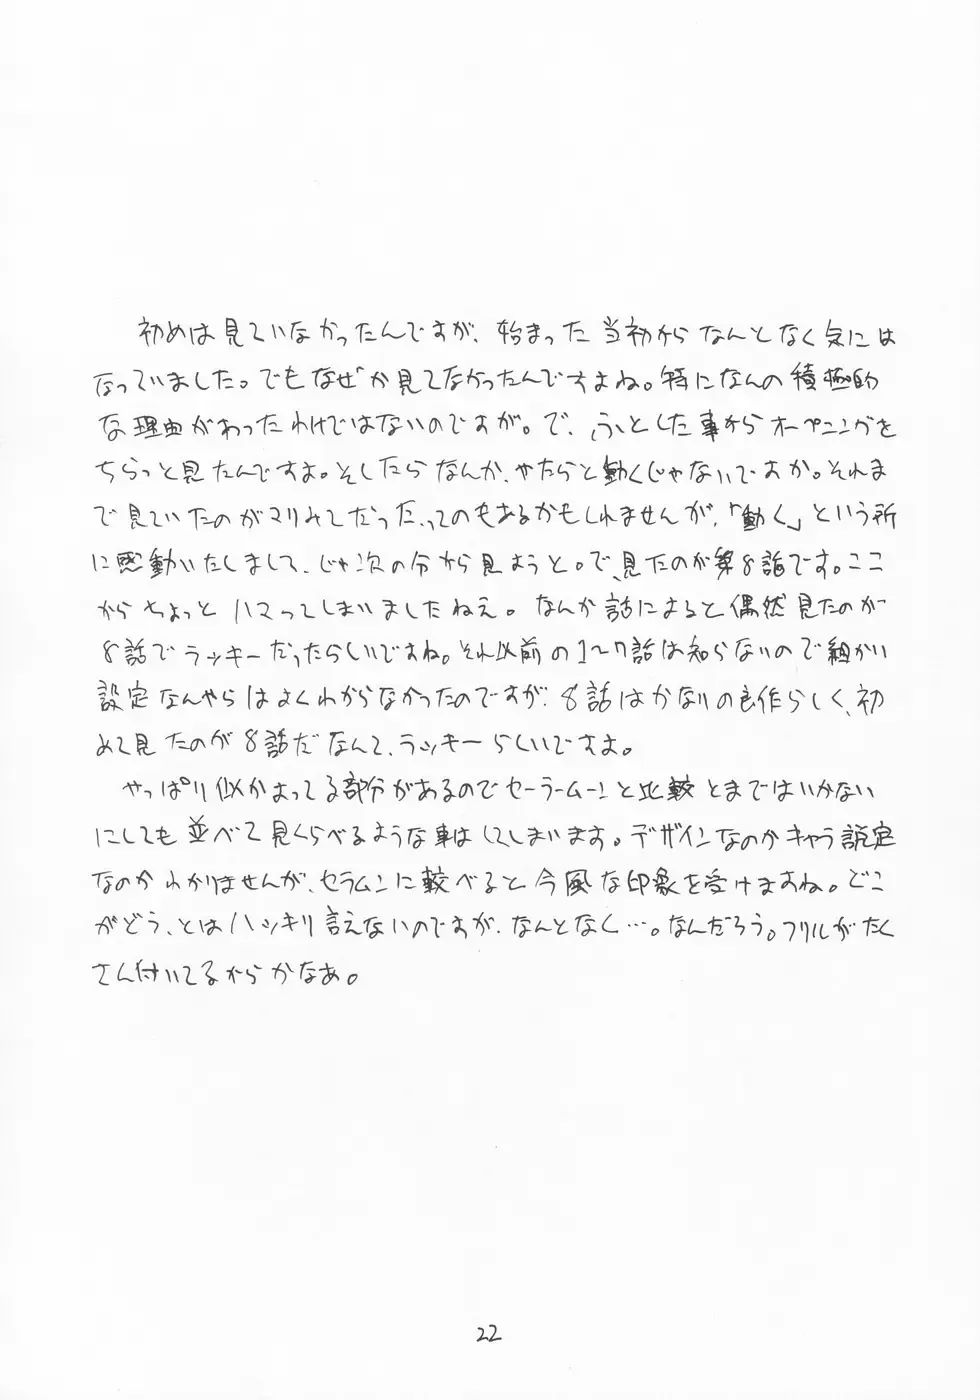 初めは見ていなかったんですが、始まった当初からなんとなく気には
なっていました。でもなぜか見てなかったんですよね。特になんの積極的
な理由がわったわけではないのですが。で、ふとした事からオープニングを
ちらっと見たんですよ。そしたらなんか、やたらと動くじゃないですか。それま
で見ていたのがマリみてだった、ってのもあるかもしれませんが、「動く」という所
に感動いたしまして、じゃ次の分から見ようと。で、見たのが第8話です。ここ
からちょっとハマってしまいましたねえ。なんか話によると偶然見たのが
8話でラッキーだったらしいですね。それ以前の1〜7話は知らないので細かい
設定なんやらはよくわからなかったのですが、8話はかなりの良作らしく、初
めて見たのが8話だなんて、ラッキーらしいですよ。
やっぱり似かよってる部分があるのでセーラームーンと比較とまではいかない
にしても並べて見くらべるような事はしてしまいます。デザインなのかキャラ設定
なのかわかりませんが、セラムンに較べると今風な印象を受けますね。どこ
がどう、とはハッキリ言えないのですが、なんとなく…。なんだろう。フリルがたく
さん付いてるからかなあ。
22